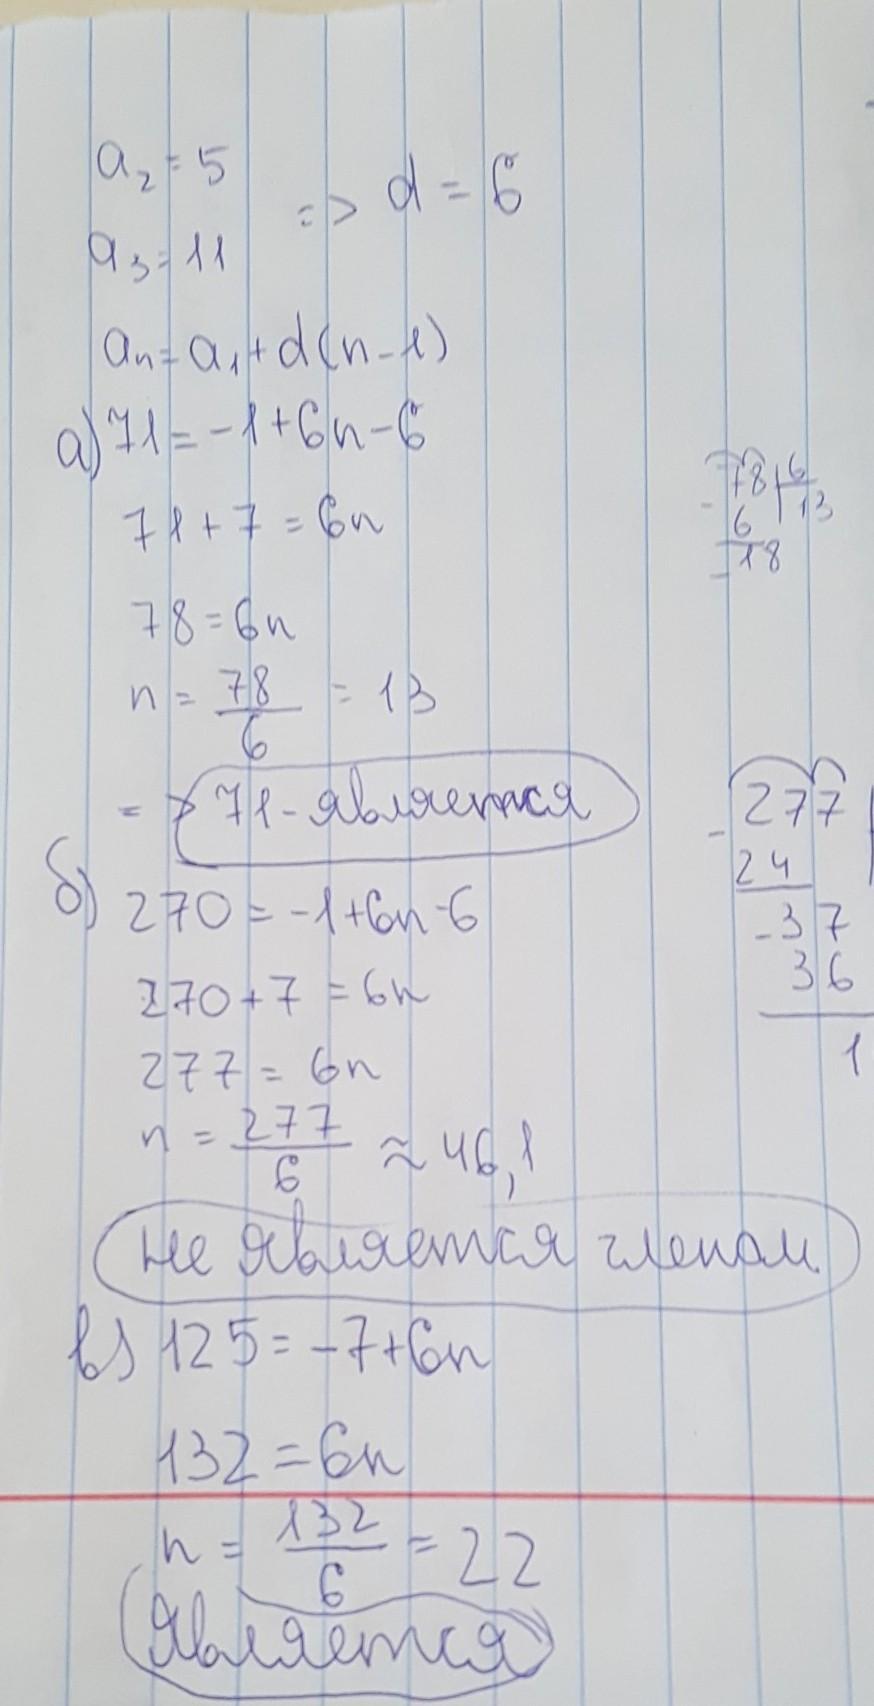 a₂ = 5
a₃ = 11
=> d = 6
aₙ = a₁ + d(n - 1)
а) 71 = -1 + 6n - 6
71 + 7 = 6n
78 = 6n
n = 78/6 = 13
=> 71 - является
б) 270 = -1 + 6n - 6
270 + 7 = 6n
277 = 6n
n = 277/6 ≈ 46,1
не является членом
в) 125 = -7 + 6n
132 = 6n
n = 132/6 = 22
является
- 78 | 6
6 | 13
- 18
- 277
24
- 37
36
1